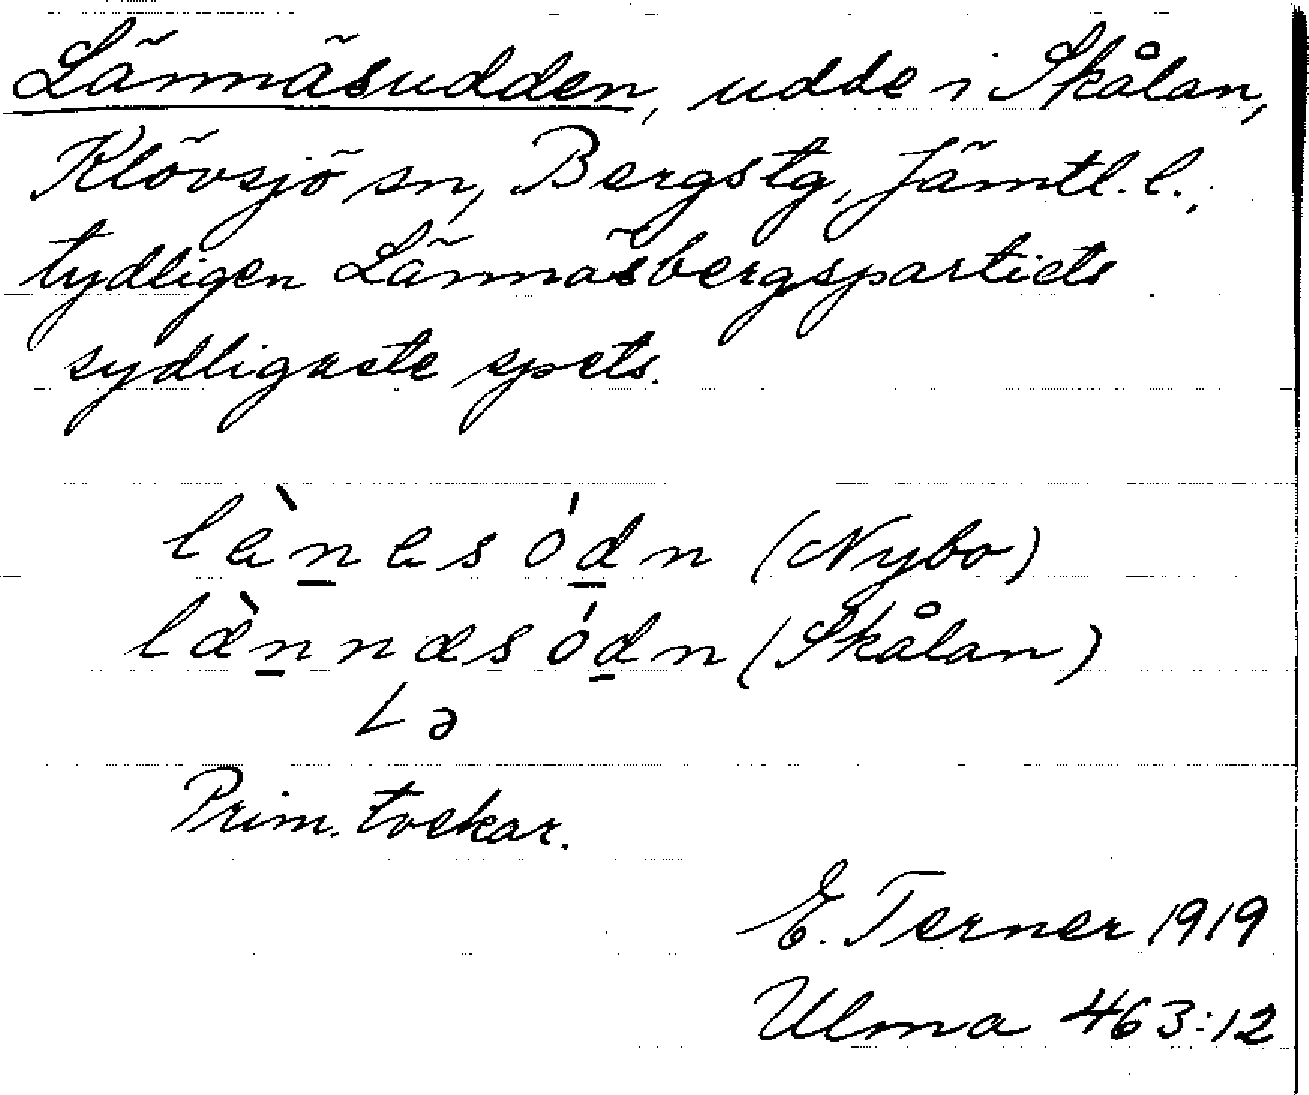 Lännäsudden, udde i Skålan,
Klövsjö sn, Bergs tg, Jämtl. l.,
tydligen Lännäsbergspartiets
sydligaste spets.
lèn̲es ód̲n (Nybo)
læ̀n̲næs ód̲n (Skålan)
∠ ə
Prim. tvekar.
E. Terner 1919
Ulma 463:12